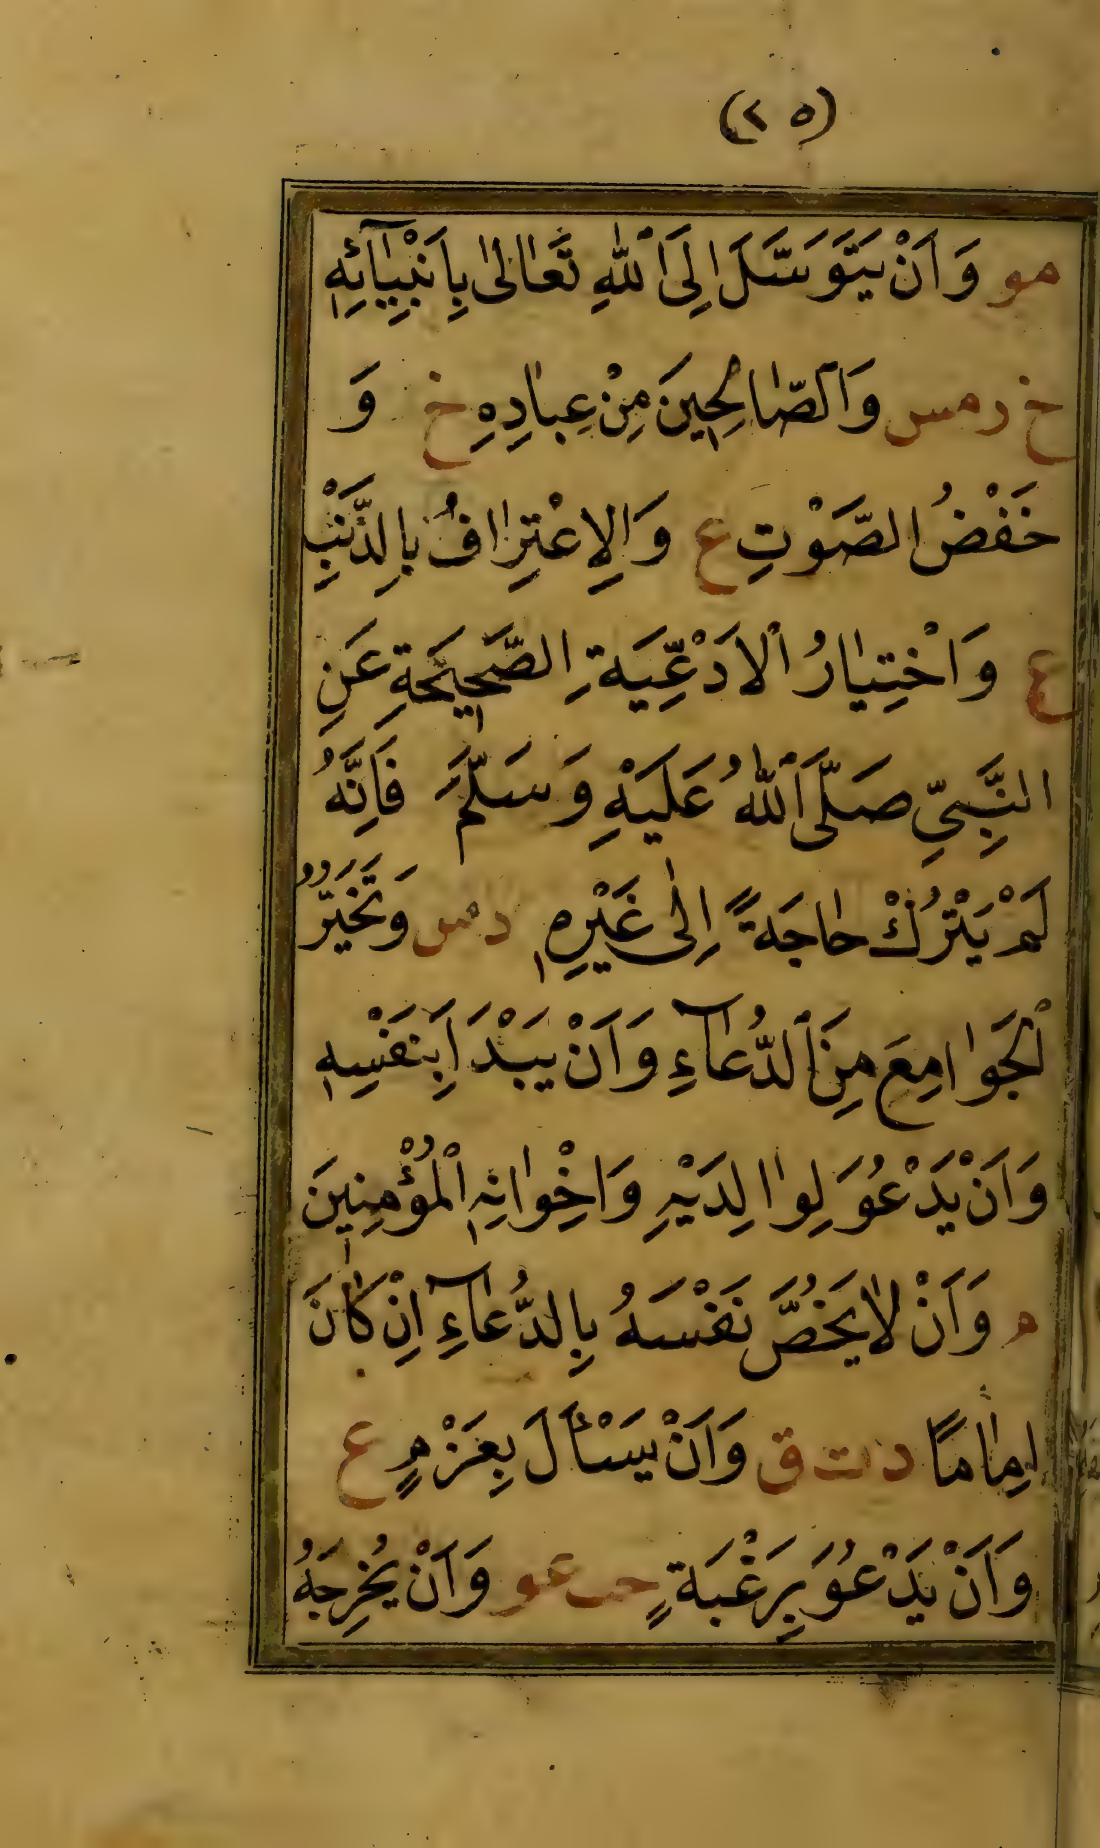 (٢٥)
مو وَاَنْ يَتَوَسَّلَ اِلَى اللّٰهِ تَعَالٰى بِاَنْبِيَآئِهٖ
خ ر مس وَالصَّالِحِينَ مِنْ عِبَادِهِ خ وَ
خَفْضُ الصَّوْتِ ع وَالِاعْتِرَافُ بِالذَّنْبِ
ع وَاخْتِيَارُ الْاَدْعِيَةِ الصَّحِيحَةِ عَنِ
النَّبِيِّ صَلَّى اللّٰهُ عَلَيْهِ وَسَلَّمَ فَاِنَّهُ
لَمْ يَتْرُكْ حَاجَةً اِلٰى غَيْرِهٖ د س وَتَخَيُّرُ
الْجَوَامِعَ مِنَ الدُّعَآءِ وَاَنْ يَبْدَاَ بِنَفْسِهٖ
وَاَنْ يَدْعُوَ لِوَالِدَيْهِ وَاِخْوَانِهِ الْمُؤْمِنِينَ
م وَاَنْ لَا يَخُصَّ نَفْسَهُ بِالدُّعَآءِ اِنْ كَانَ
اِمَامًا د ت ق وَاَنْ يَسْأَلَ بِعَزْمٍ ع
وَاَنْ يَدْعُوَ بِرَغْبَةٍ حب عو وَاَنْ يُخْرِجَهُ